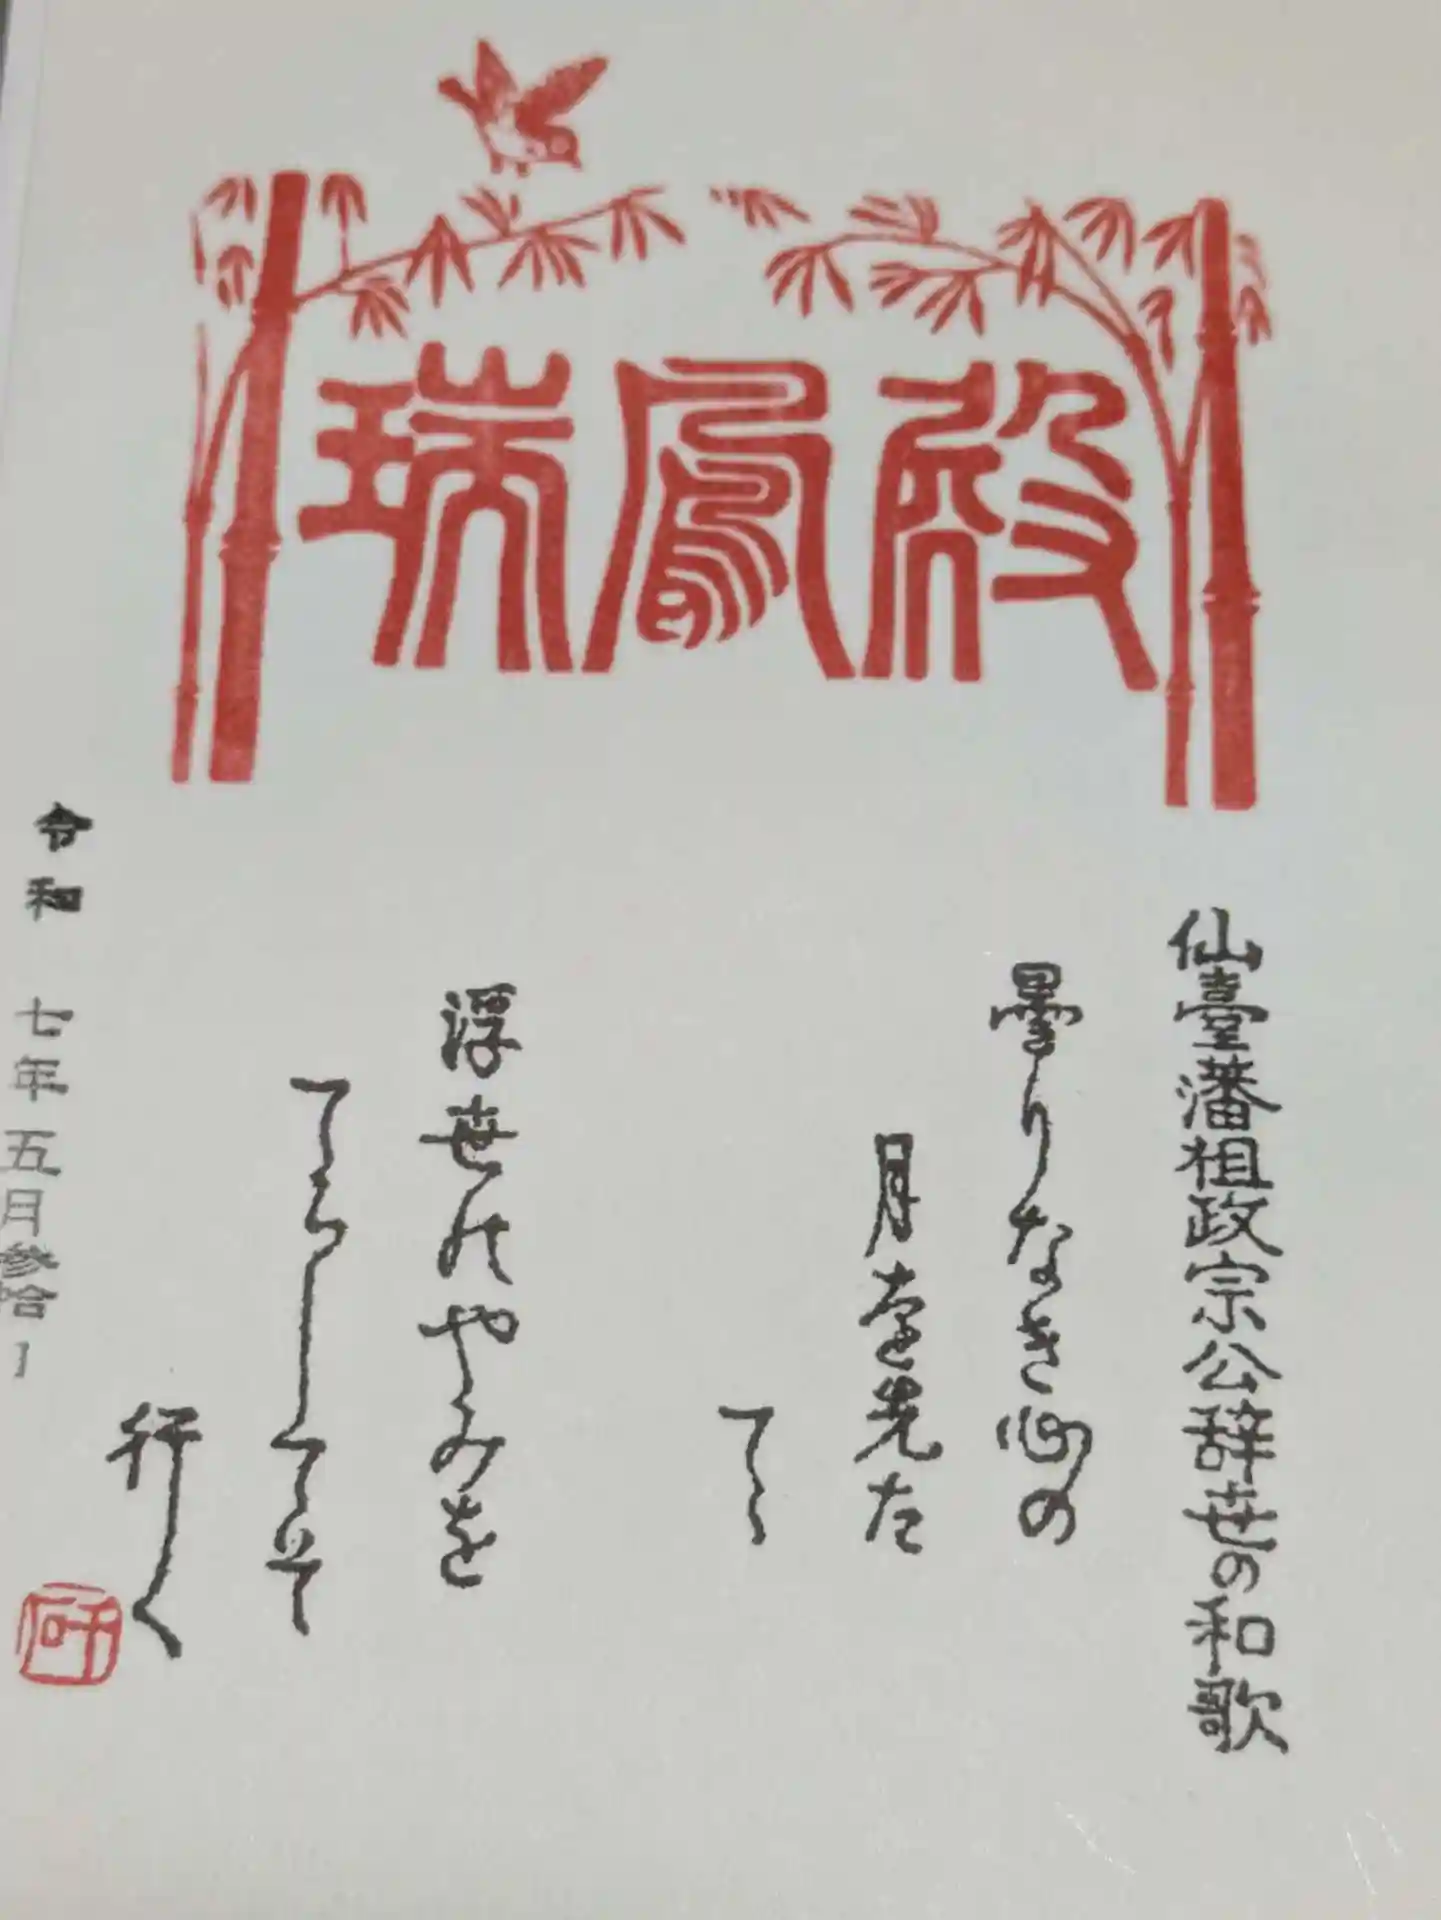 瑞鳳殿
仙臺藩祖政宗公辞世の和歌
曇りなき心の
月を先た
てゝ
浮世のやみを
てらしてそ
行く
令和 七年 五月 参拾